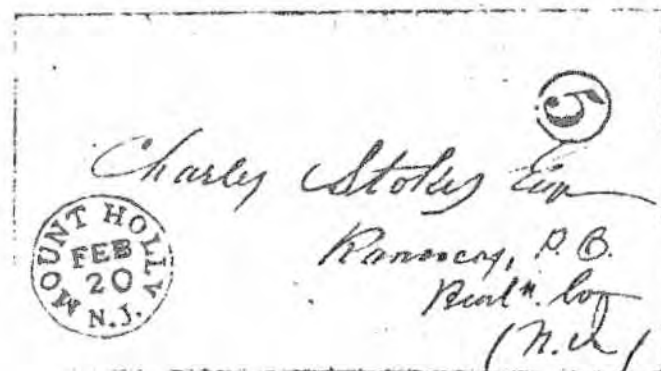 5
Charles Stokes Esq
Rancocas, P.O.
Burlⁿ. Coy
(N.J.)
MOUNT HOLLY
FEB
20
N.J.